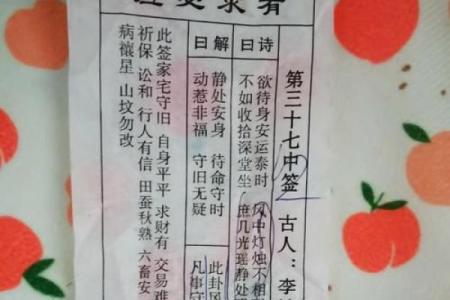 第三十七中签 古人：李
诗曰
欲待身安运泰时 风中灯烛不相
不如收拾深堂坐 庶几光瑶静处
解曰
静处安身 待命守时
动惹非福 守旧无疑
此卦风
凡事守
此签家宅守旧 自身平平 求财有 交易难
祈保 讼和 行人有信 田蚕秋熟 六畜安
病禳星 山坟勿改